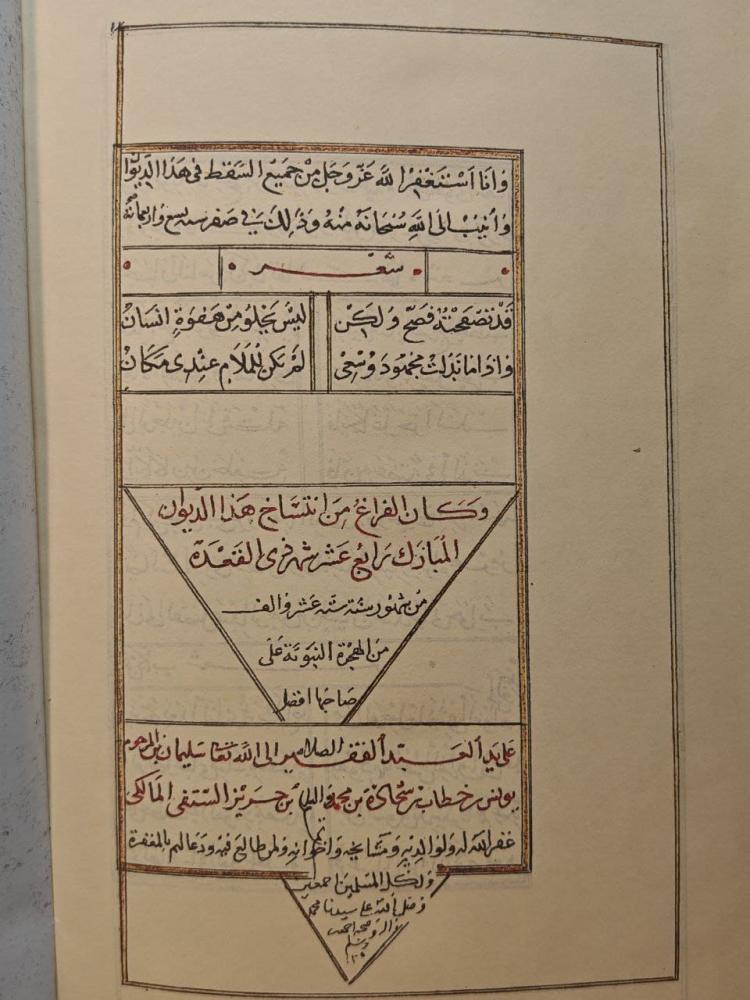 وانا استغفر الله عز وجل من جميع السقط في هذا الديوان
وانيب الى الله سبحانه منه وذلك في صفر سنه تسع واربعمائة
شعر
قد تصفحته فصح ولكن ليس يخلو من هفوة انسان
واذا ما بذلت مجهود وسعى لم تكن للملام عندى مكان
وكان الفراغ من انتساخ هذا الديوان
المبارك رابع عشر شهر ذى القعدة
من شهور سنة ستة عشر والف
من الهجرة النبوية على
صاحبها افضل
الصلا
على يد العبد الفقير الى الله تعا سليمان بن المرحوم
يونس بن خطاب بن شحادة بن محمد بن حريز السنتفى المالكى
غفر الله له ولوالديه ومشايخه واخوانه ولمن طالع فيه ودعا لهم بالمغفرة
ولكل المسلمين اجمعين
وصلى الله على سيدنا محمد
واله وصحبه اجمعين
وسلم